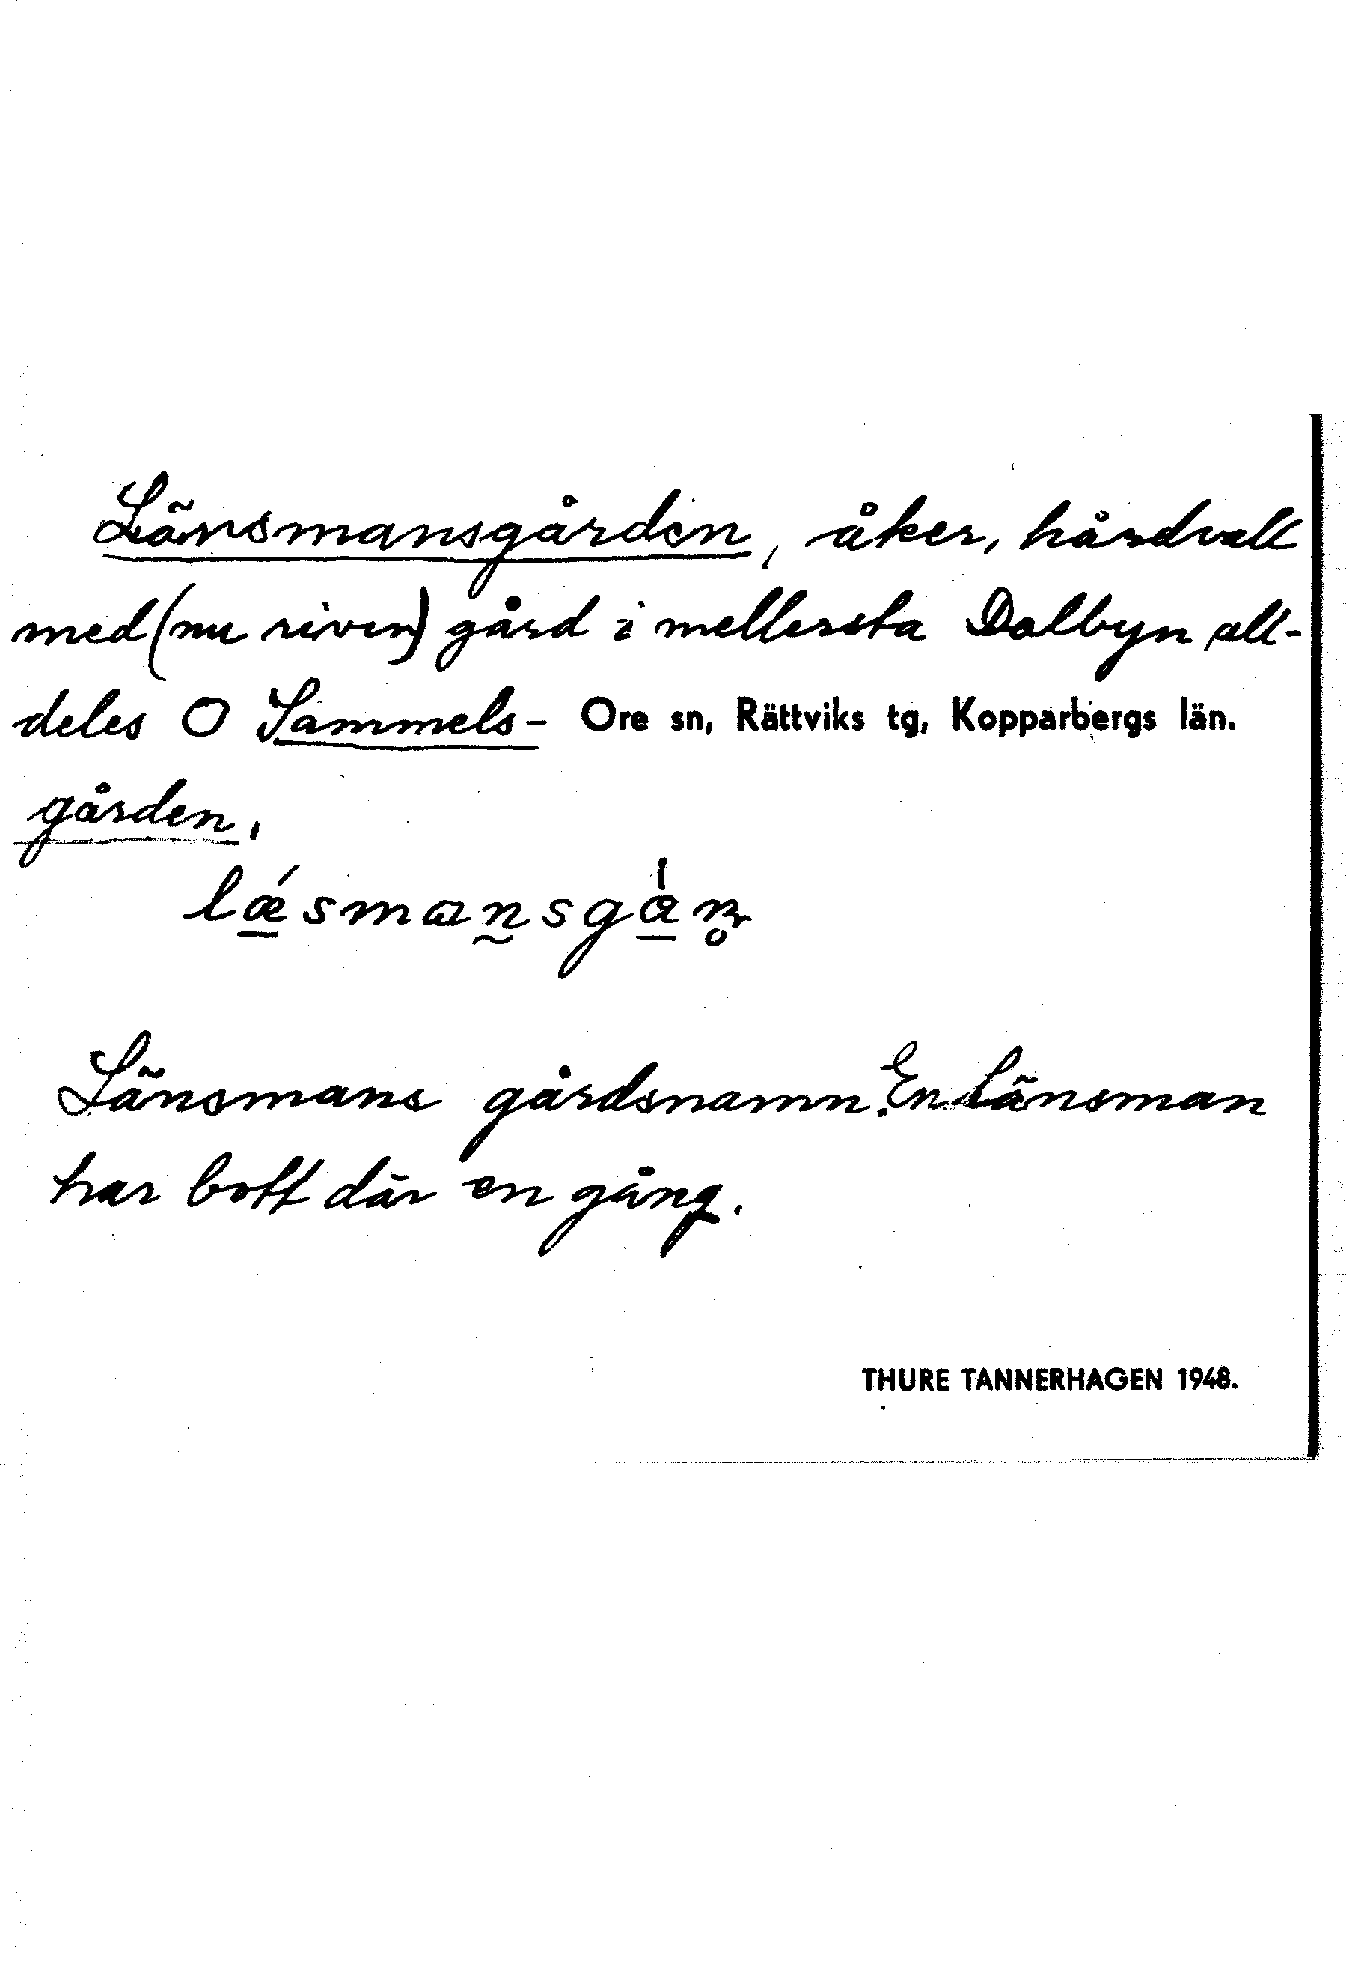 Länsmansgården, åker, hårdvall
med (nu riven) gård i mellersta Dalbyn all-
deles O Sammels- Ore sn, Rättviks tg, Kopparbergs län.
gården.
lǽsmansgån̥
Länsmans gårdsnamn. En länsman
har bott där en gång.
THURE TANNERHAGEN 1948.